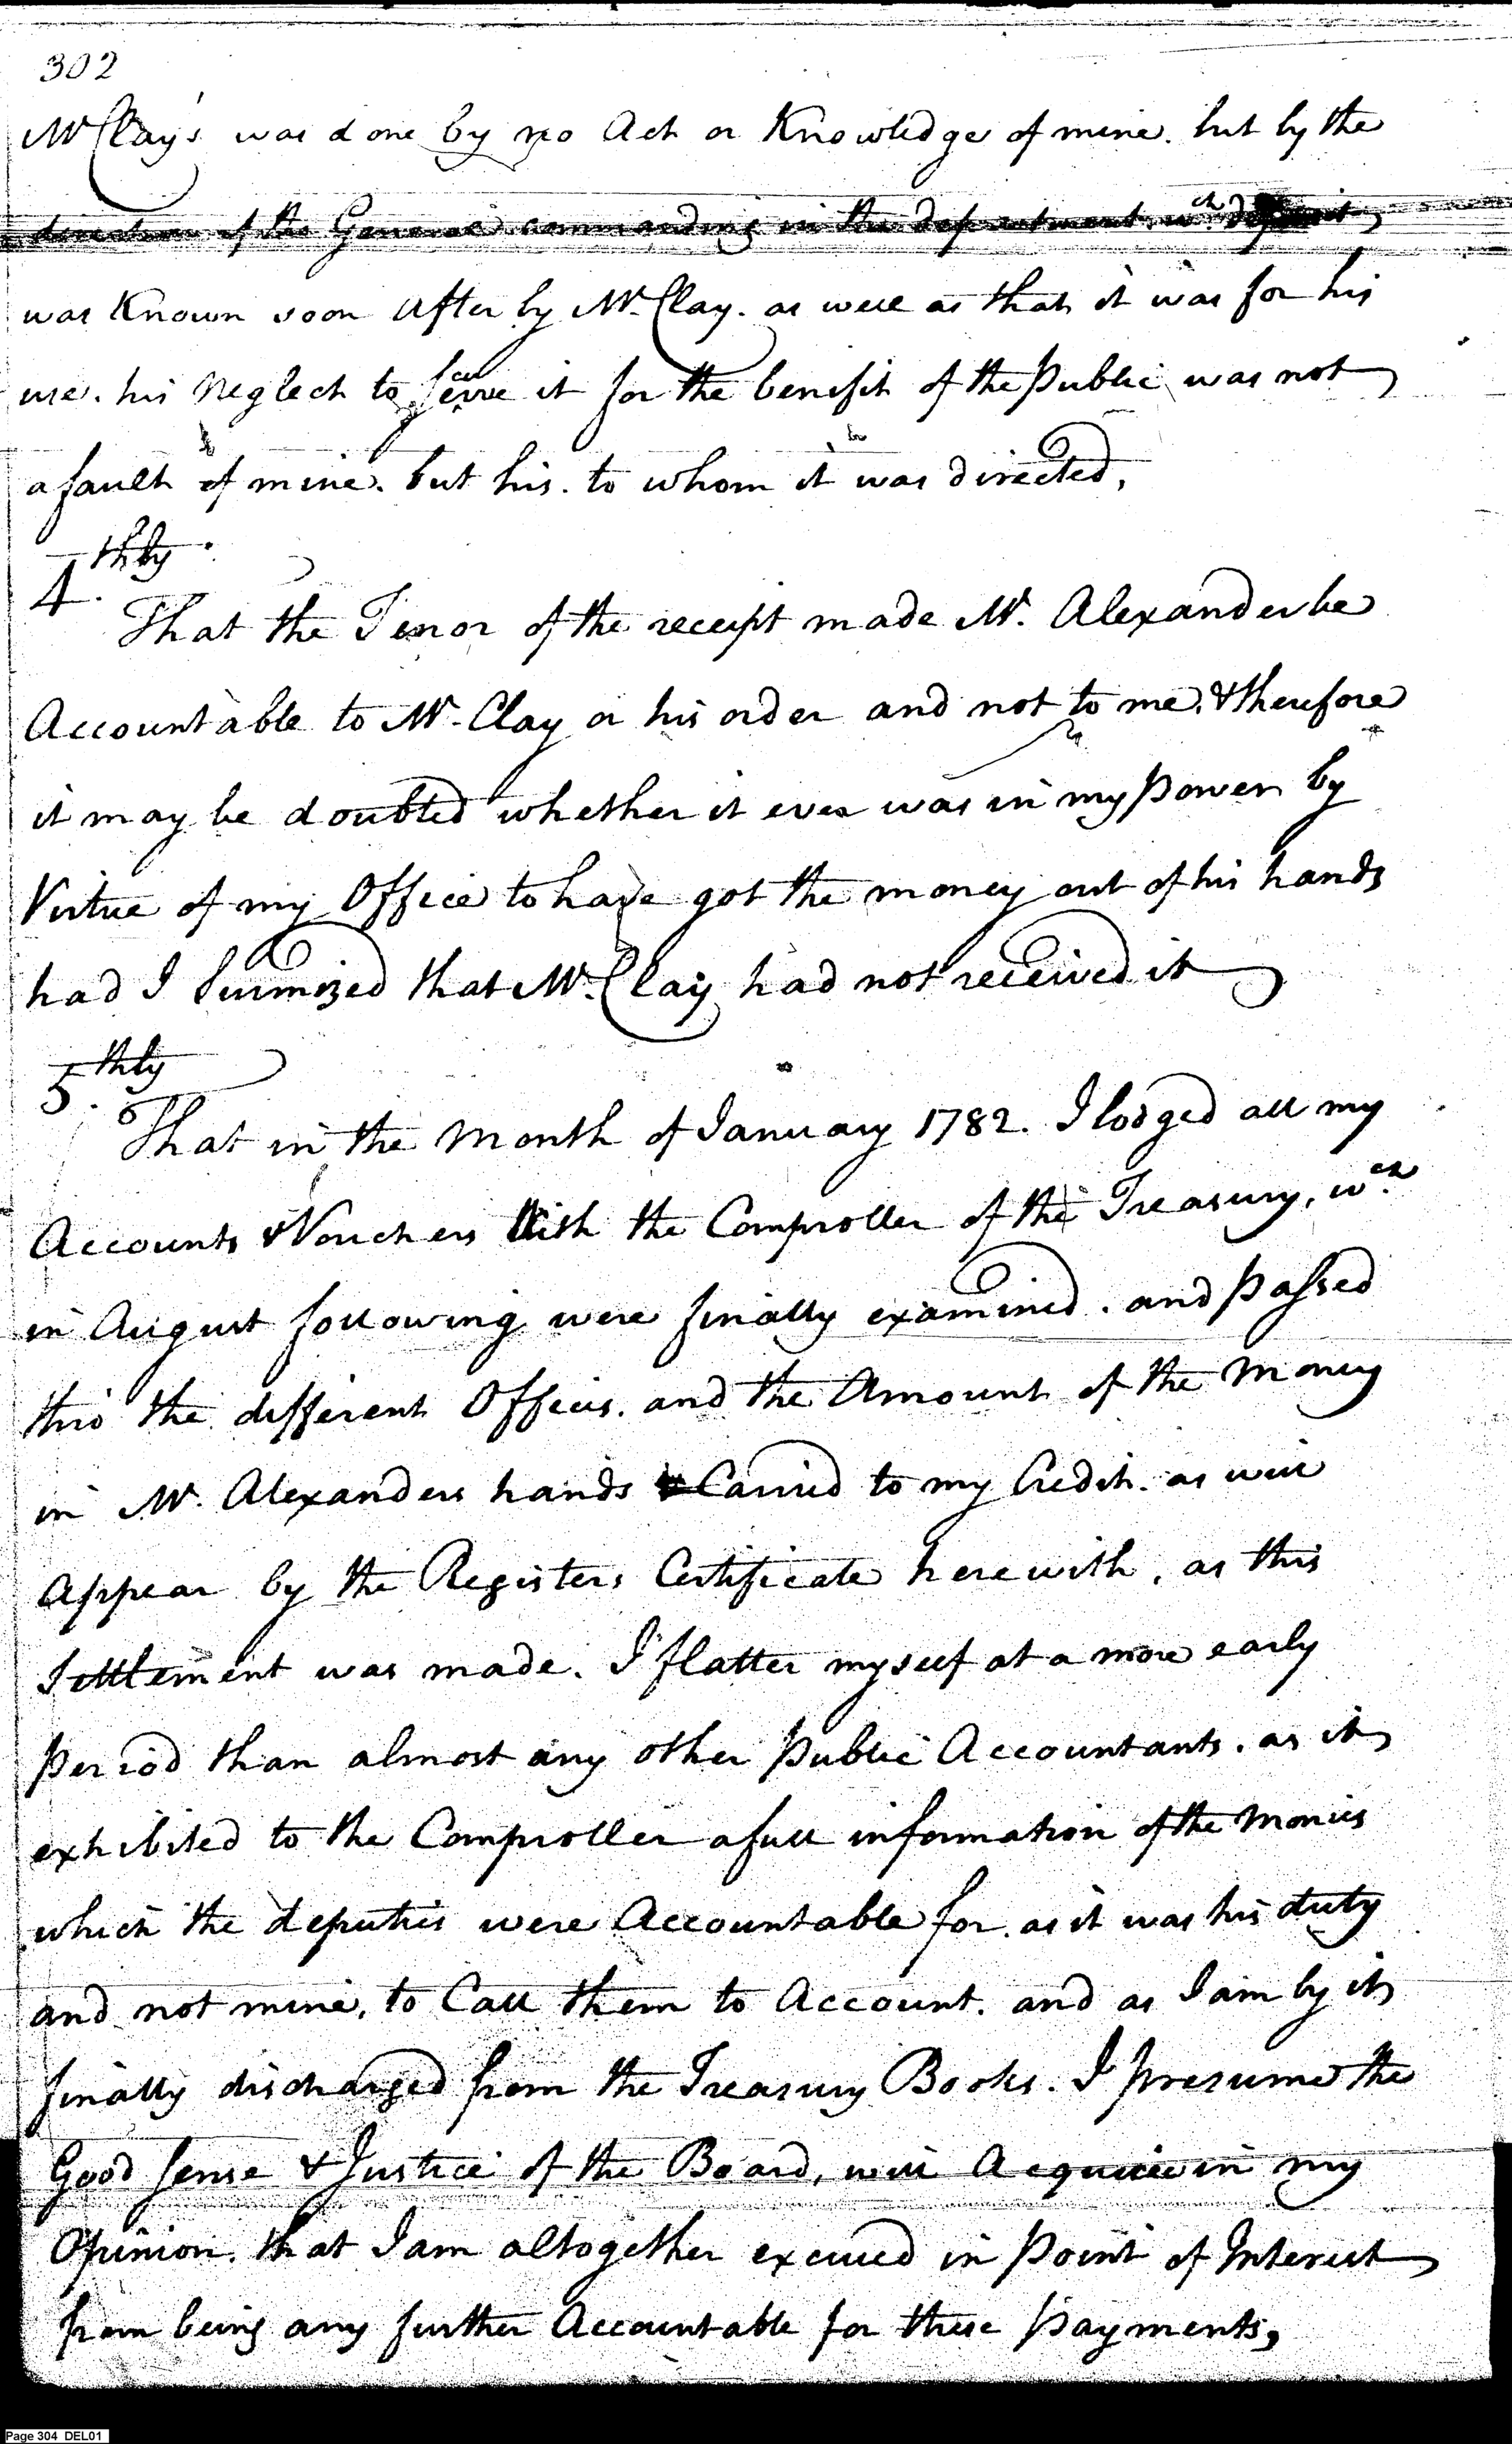 302
Mr. Clay's was done by no Act or Knowledge of mine. but by the
direction of the General commanding in the department. wch. deposit
was Known soon after by Mr. Clay. as well as that it was for his
use. his Neglect to secure it for the benifit of the Public was not
a fault of mine. but his. to whom it was directed,
4.thly
That the Tenor of the receipt made Mr. Alexander be
Accountable to Mr. Clay or his order and not to me. & therefore
it may be doubted whether it ever was in my Power by
Virtue of my Office to have got the money out of his hands
had I Surmized that Mr. Clay had not received it
5.thly
That in the Month of January 1782. I lodged all my
Accounts & Vouchers With the Comproller of the Treasury, wch.
in August following were finally examined. and Passed
thro' the different Offices. and the Amount of the Money
in Mr. Alexanders hands Carried to my Credit. as will
Appear by the Registers Certificate herewith, as this
Settlement was made. I flatter myself at a more early
Period than almost any other Public Accountants. as it
exhibited to the Comproller a full information of the Monies
which the deputies were Accountable for. as it was his duty
and not mine, to Call them to Account. and as I am by it
finally discharged from the Treasury Books. I presume the
Good Sense & Justice of the Board, will Acquiece in my
Opinion. that I am altogether excused in Point of Interest
from being any further Accountable for these Payments,
Page 304 DEL01